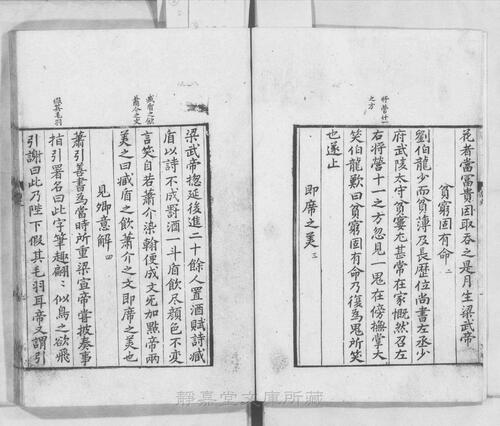 花者當冨貴因取吞之是月生梁武帝
貧窮固有命二
劉伯龍少而貧薄及長歴位尚書左丞少
府武陵太守貧窶尤甚常在家慨然召左
右將營十一之方忽見一鬼在傍撫掌大
笑伯龍歎曰貧窮固有命乃復為鬼所笑
也遂止
即席之美三
將營什一
之方
梁武帝揔延後進二十餘人置酒賦詩臧
盾以詩不成罸酒一斗盾飲尽顔色不变
言笑自若蕭介染翰便成文无加點帝兩
美之曰臧盾之飲蕭介之文即席之美也
見卿意解四
蕭引善書為當時所重梁宣帝嘗披奏事
指引署名曰此字筆趣翩々似鳥之欲飛
引謝曰此乃陛下假其毛羽耳帝又謂引
臧盾之飲
蕭介之文
假其毛羽
靜嘉堂文庫所藏